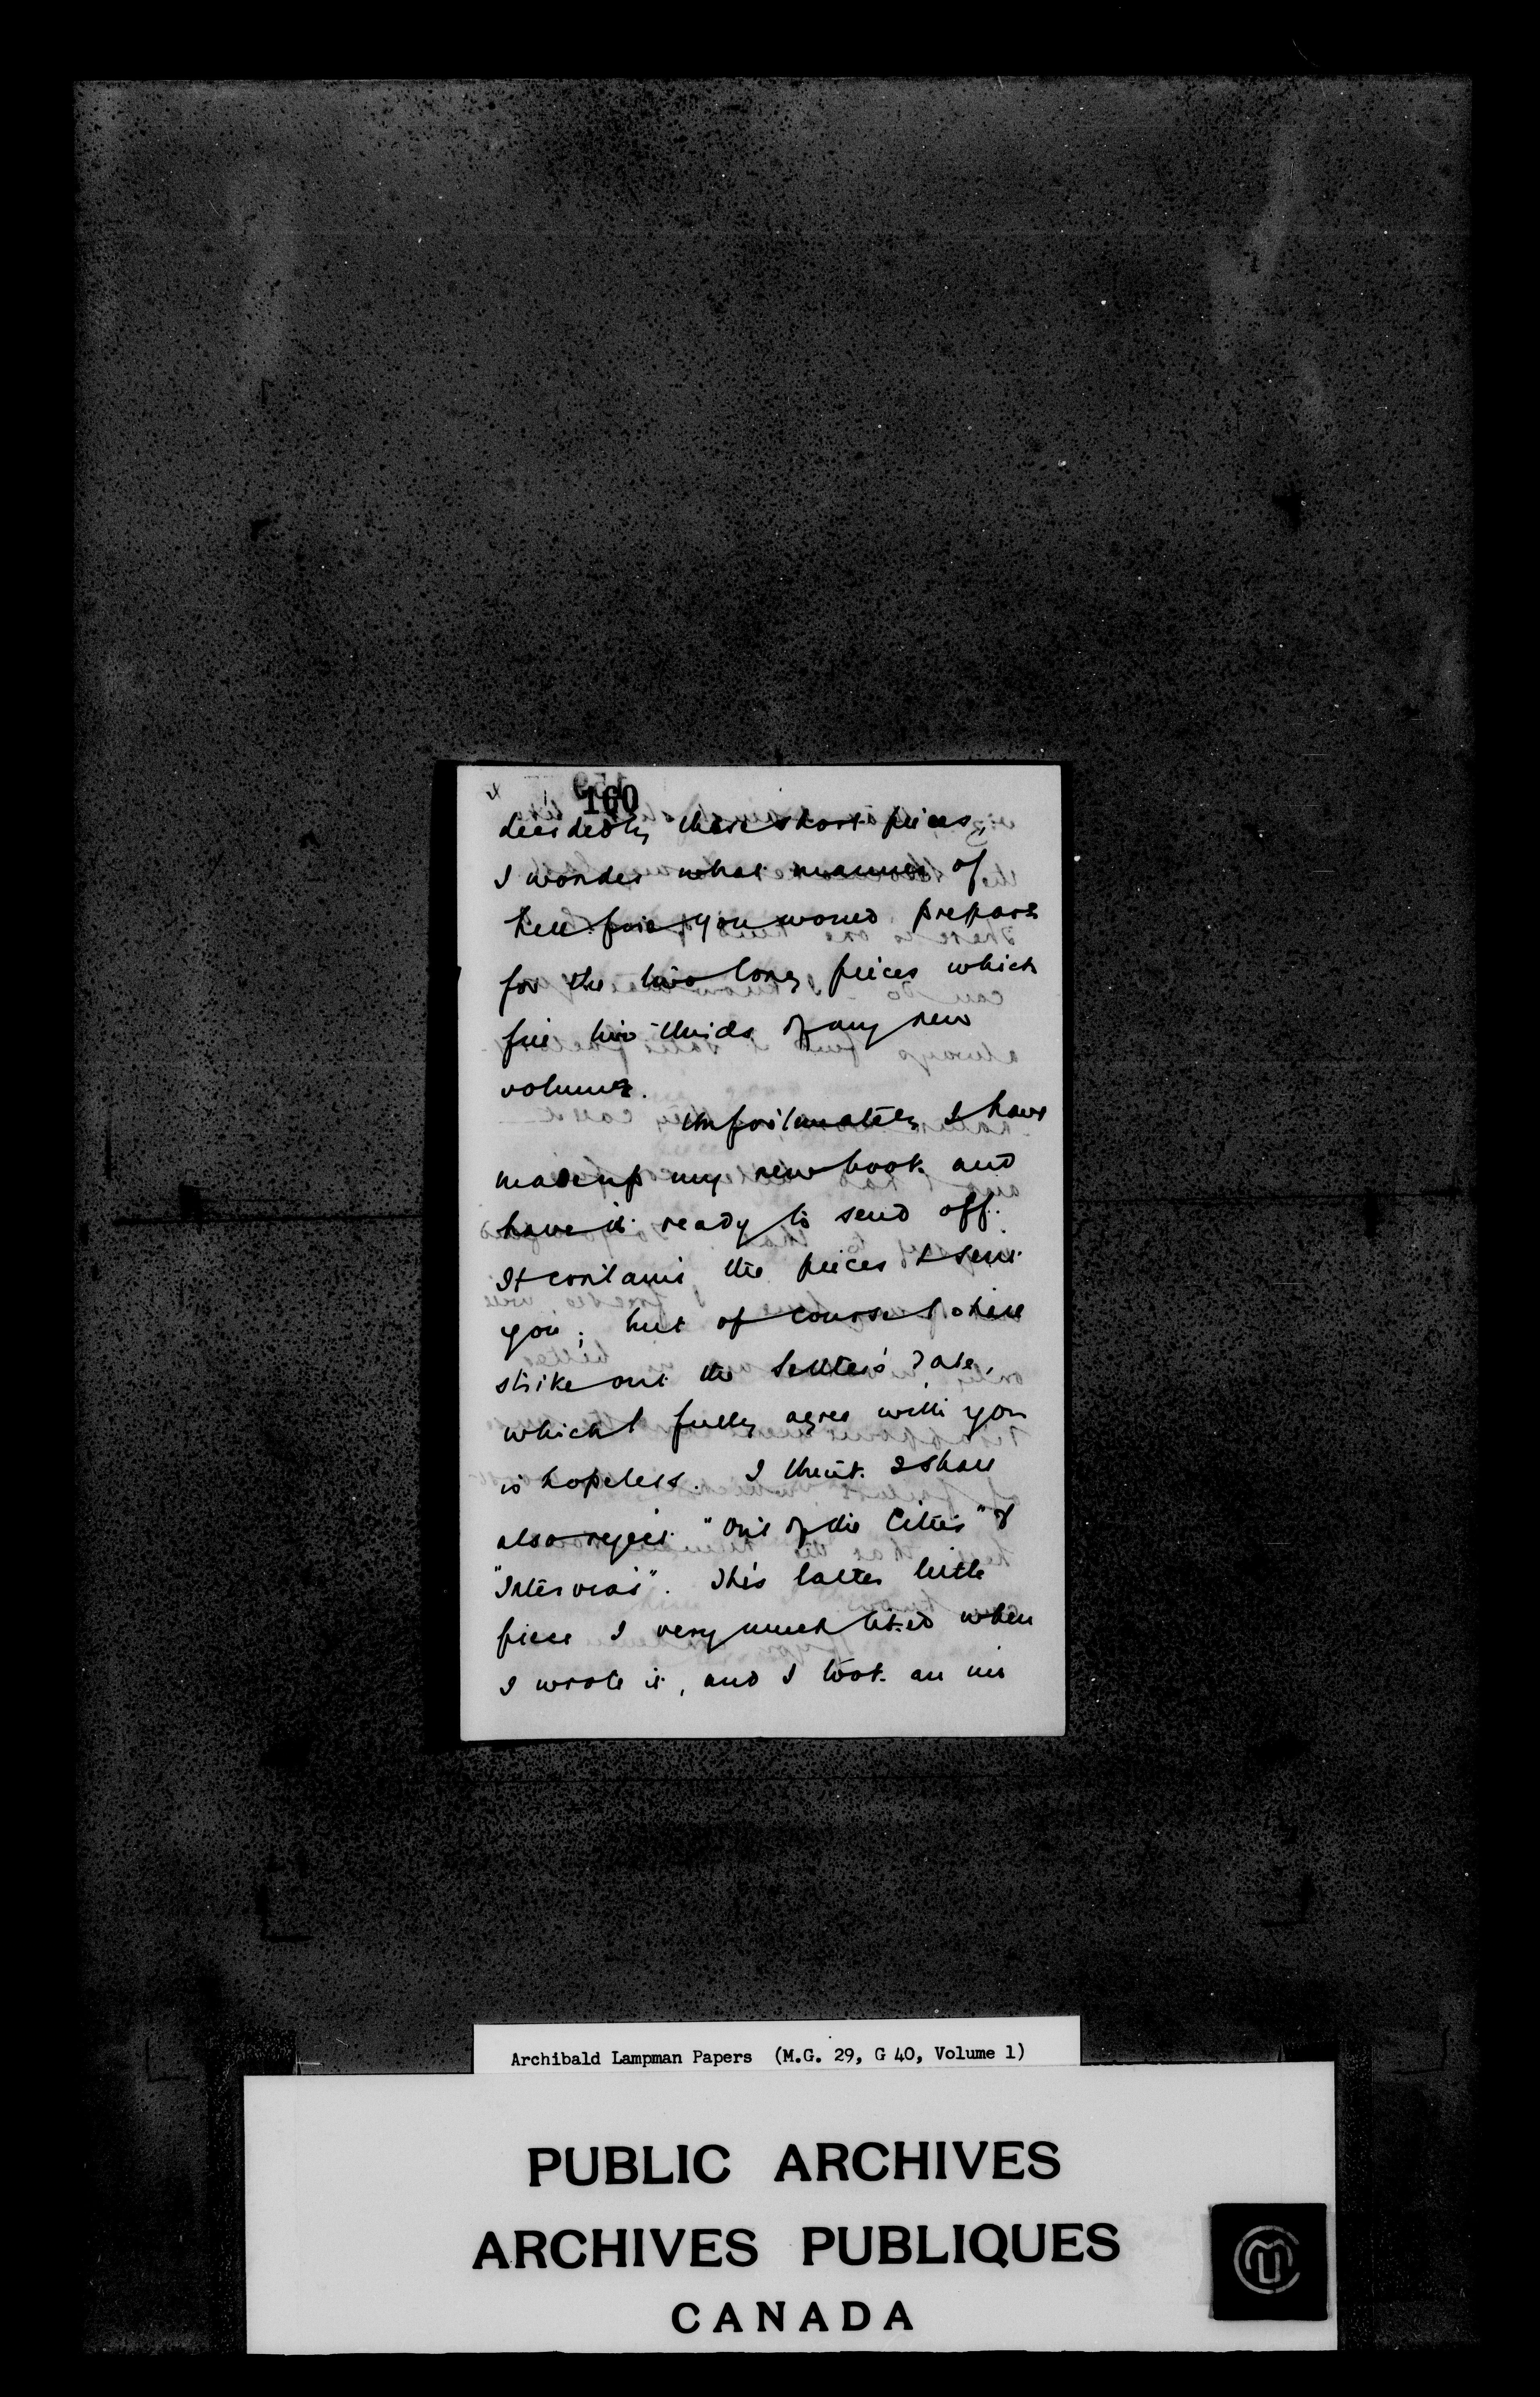 160
decidedly these short pieces,
I wonder what manner of
hell-fire you would prepare
for the two long pieces which
fill two-thirds of my new
volume.
Unfortunately I have
made up my new book and
have it ready to send off.
It contains the pieces I sent
you; but of course I shall
strike out the Settler's Tale,
which I fully agree with you
is hopeless. I think I shall
also reject "Out of the Cities" &
"Intervals". This latter little
piece I very much liked when
I wrote it, and I took an
Archibald Lampman Papers (M.G. 29, G 40, Volume 1)
PUBLIC ARCHIVES
ARCHIVES PUBLIQUES
CANADA